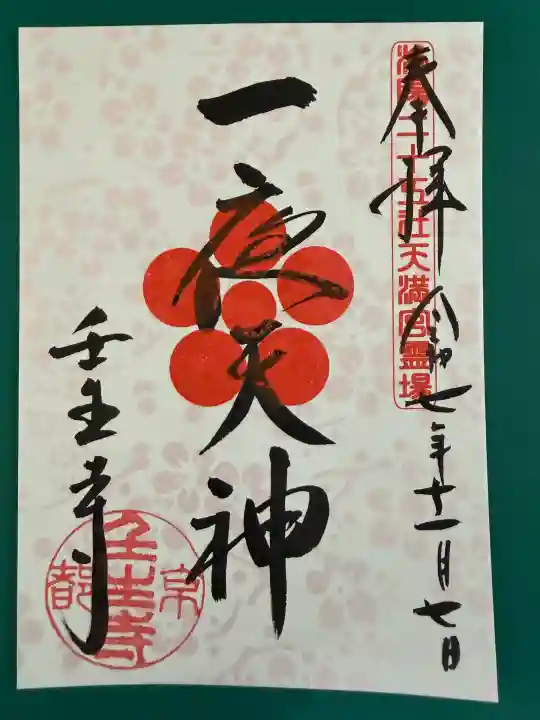 奉拝 令和七年十一月七日
洛陽二十五社天満宮霊場
一夜天神
壬生寺
京都 壬生寺